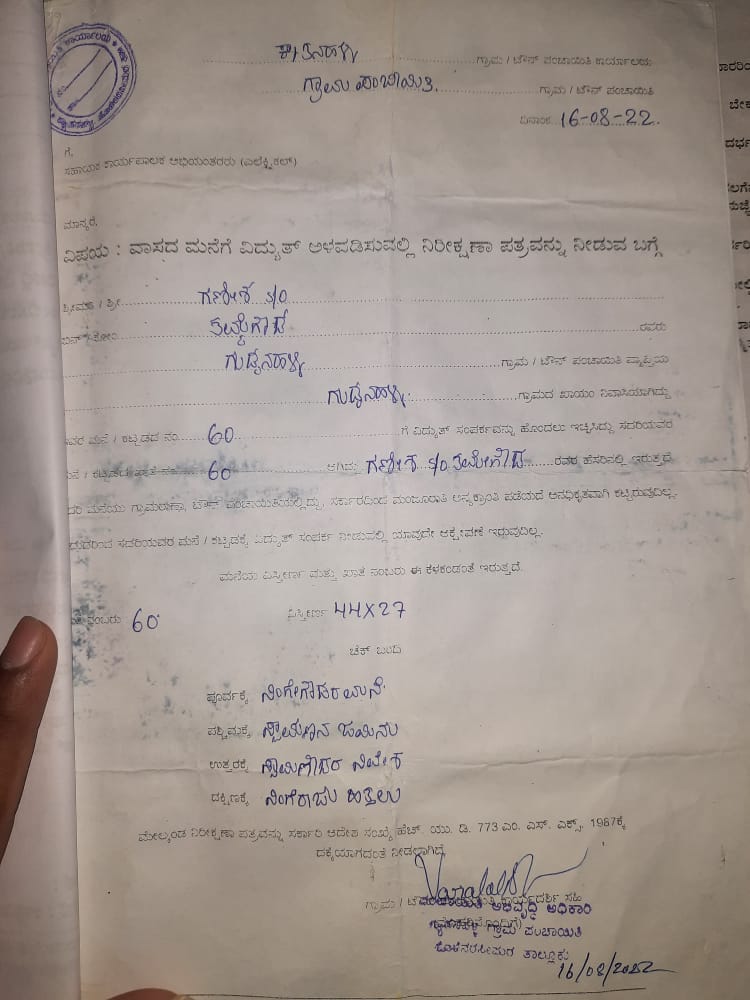 ಗ್ರಾಮ / ಟೌನ್ ಪಂಚಾಯಿತಿ ಕಾರ್ಯಾಲಯ
ಗ್ರಾಮ ಪಂಚಾಯಿತಿ. ಗ್ರಾಮ / ಟೌನ್ ಪಂಚಾಯಿತಿ
ದಿನಾಂಕ 16-08-22
ಗೆ,
ಸಹಾಯಕ ಕಾರ್ಯಪಾಲಕ ಅಭಿಯಂತರರು (ಎಲೆಕ್ಟ್ರಿಕಲ್)
ಮಾನ್ಯರೆ,
ವಿಷಯ : ವಾಸದ ಮನೆಗೆ ವಿದ್ಯುತ್ ಅಳವಡಿಸುವಲ್ಲಿ ನಿರೀಕ್ಷಣಾ ಪತ್ರವನ್ನು ನೀಡುವ ಬಗ್ಗೆ
ಶ್ರೀಮತಿ / ಶ್ರೀ ಗಣೇಶ S/o
ತಮ್ಮೇಗೌಡ ರವರು
ಗುಡ್ಡೇನಹಳ್ಳಿ ಗ್ರಾಮ / ಟೌನ್ ಪಂಚಾಯಿತಿ ವ್ಯಾಪ್ತಿಯ
ಗುಡ್ಡೇನಹಳ್ಳಿ ಗ್ರಾಮದ ಖಾಯಂ ನಿವಾಸಿಯಾಗಿದ್ದು
ಮನೆ / ಕಟ್ಟಡದ ನಂ. 60 ಗೆ ವಿದ್ಯುತ್ ಸಂಪರ್ಕವನ್ನು ಹೊಂದಲು ಇಚ್ಛಿಸಿದ್ದು ಸದರಿಯವರ
60 ಆಗಿದ್ದು ಗಣೇಶ S/o ತಮ್ಮೇಗೌಡ ರವರ ಹೆಸರಿನಲ್ಲಿ ಇರುತ್ತದೆ
ಮನೆಯು ಗ್ರಾಮಠಾಣಾ, ಟೌನ್ ಪಂಚಾಯಿತಿಯಲ್ಲಿದ್ದು, ಸರ್ಕಾರದಿಂದ ಮಂಜೂರಾತಿ ಅನ್ಯಕ್ರಾಂತಿ ಪಡೆಯದೆ ಅನಧಿಕೃತವಾಗಿ ಕಟ್ಟಿರುವುದಿಲ್ಲ.
ಸದರಿಯವರ ಮನೆ / ಕಟ್ಟಡಕ್ಕೆ ವಿದ್ಯುತ್ ಸಂಪರ್ಕ ನೀಡುವಲ್ಲಿ ಯಾವುದೇ ಆಕ್ಷೇಪಣೆ ಇರುವುದಿಲ್ಲ.
ಮನೆಯ ವಿಸ್ತೀರ್ಣ ಮತ್ತು ಖಾತೆ ನಂಬರು ಈ ಕೆಳಕಂಡಂತೆ ಇರುತ್ತದೆ.
ನಂಬರು 60 ವಿಸ್ತೀರ್ಣ 44X27
ಚೆಕ್ ಬಂದಿ
ಪೂರ್ವಕ್ಕೆ ನಿಂಗೇಗೌಡರ ಮನೆ
ಪಶ್ಚಿಮಕ್ಕೆ ಸ್ವಾಮಣ್ಣನ ಜಮೀನು
ಉತ್ತರಕ್ಕೆ ಸ್ವಾಮಿಗೌಡರ ನಿವೇಶ
ದಕ್ಷಿಣಕ್ಕೆ ನಿಂಗರಾಜು ಹಿತ್ತಲು
ಮೇಲ್ಕಂಡ ನಿರೀಕ್ಷಣಾ ಪತ್ರವನ್ನು ಸರ್ಕಾರಿ ಆದೇಶ ಸಂಖ್ಯೆ ಹೆಚ್. ಯು. ಡಿ. 773 ಎಂ. ಎಸ್. ಎಕ್ಸ್. 1987ಕ್ಕೆ
ದಕ್ಕೆಯಾಗದಂತೆ ನೀಡಲಾಗಿದೆ.
ಗ್ರಾಮ / ಟೌನ್ ಪಂಚಾಯಿತಿ ಕಾರ್ಯದರ್ಶಿ ಸಹಿ
ಪಂಚಾಯಿತಿ ಅಭಿವೃದ್ಧಿ ಅಧಿಕಾರಿ
ಗ್ರಾಮ ಪಂಚಾಯಿತಿ
ಹೊಳೆನರಸೀಪುರ ತಾಲ್ಲೂಕು
16/08/2022